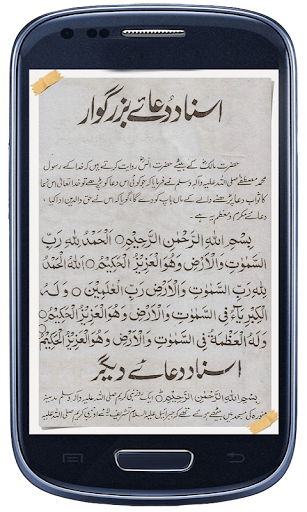 اسناد دُعائے بزرگوار
حضرت مالکؓ کے بیٹے حضرت انسؓ روایت کرتے ہیں کہ خدا کے رسول
محمد مصطفےٰ صلی اللہ علیہ وآلہ وسلم نے فرمایا کہ جو کوئی اس دعا کو پڑھے تو خدا تعالیٰ اس دعا
کا ثواب دعا پڑھنے والے کے ماں باپ کو دے گا، گویا کہ اس نے حق والدین ادا کیا،
دعائے مکرم و معظم یہ ہے
بِسْمِ اللهِ الرَّحْمٰنِ الرَّحِيْمِ ○ اَلْحَمْدُ لِلّٰهِ رَبِّ
السَّمٰوٰتِ وَالْاَرْضِ وَهُوَ الْعَزِيْزُ الْحَكِيْمُ ○ اَللهُ الْحَمْدُ
لِلّٰهِ رَبِّ السَّمٰوٰتِ وَالْاَرْضِ رَبِّ الْعٰلَمِيْنَ ○ وَلَهُ
الْكِبْرِيَآءُ فِى السَّمٰوٰتِ وَالْاَرْضِ وَهُوَ الْعَزِيْزُ الْحَكِيْمُ ○
وَلَهُ الْعَظَمَةُ فِى السَّمٰوٰتِ وَالْاَرْضِ وَهُوَ الْعَزِيْزُ الْحَكِيْمُ
اسناد دعائے دیگر
بِسْمِ اللهِ الرَّحْمٰنِ الرَّحِيْمِ ○ ایک دن نبی کریم صلی اللہ علیہ وآلہ وسلم مدینہ
منورہ کی مسجد میں بیٹھے ہوئے تھے کہ جبرائیل علیہ السلام تشریف لائے کریم صلی اللہ علیہ